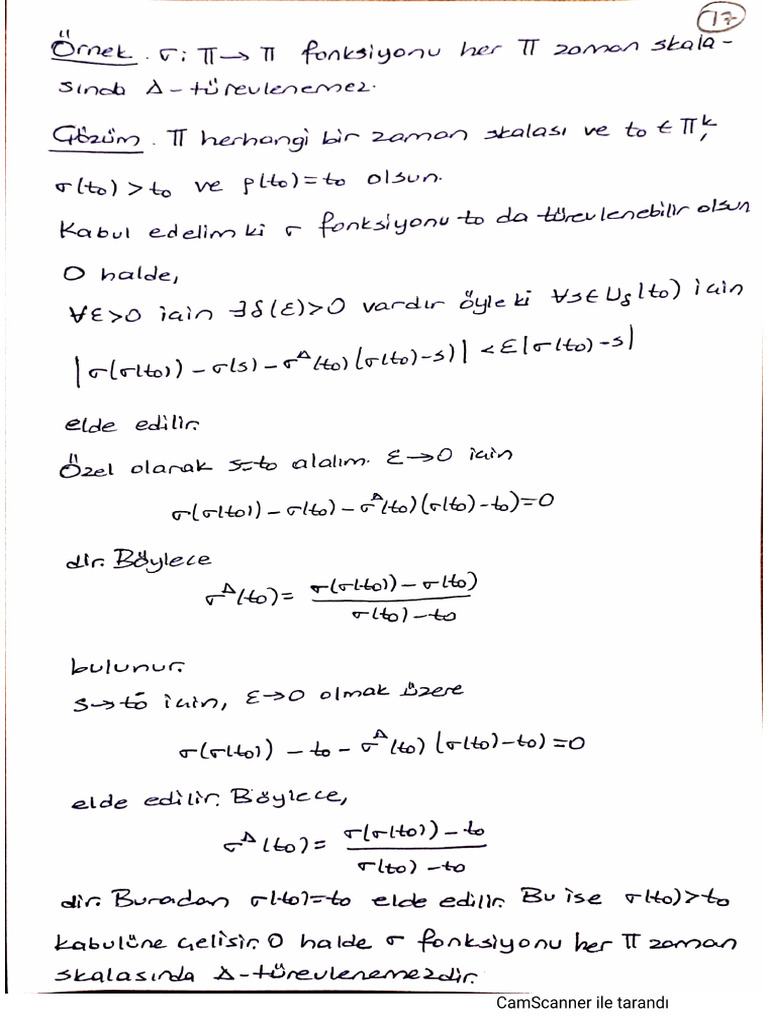 17
Örnek. σ: 𝕋→𝕋 fonksiyonu her 𝕋 zaman skala-
sında Δ-türevlenemez.
Çözüm. 𝕋 herhangi bir zaman skalası ve t₀ ∈ 𝕋ᵏ,
σ(t₀) > t₀ ve ρ(t₀) = t₀ olsun.
Kabul edelim ki σ fonksiyonu t₀ da türevlenebilir olsun
O halde,
∀ε>0 için ∃δ(ε)>0 vardır öyle ki ∀s∈U_δ(t₀) için
|σ(σ(t₀)) − σ(s) − σ^Δ(t₀)(σ(t₀)−s)| < ε|σ(t₀)−s|
elde edilir.
Özel olarak s=t₀ alalım. ε→0 için
σ(σ(t₀)) − σ(t₀) − σ^Δ(t₀)(σ(t₀)−t₀)=0
dir. Böylece
σ^Δ(t₀) = (σ(σ(t₀)) − σ(t₀)) / (σ(t₀) − t₀)
bulunur.
s→t₀⁻ için, ε→0 olmak üzere
σ(σ(t₀)) − t₀ − σ^Δ(t₀)(σ(t₀)−t₀)=0
elde edilir. Böylece,
σ^Δ(t₀) = (σ(σ(t₀)) − t₀) / (σ(t₀) − t₀)
dir. Buradan σ(t₀)=t₀ elde edilir. Bu ise σ(t₀)>t₀
kabulüne çelişir. O halde σ fonksiyonu her 𝕋 zaman
skalasında Δ-türevlenemezdir.
CamScanner ile tarandı